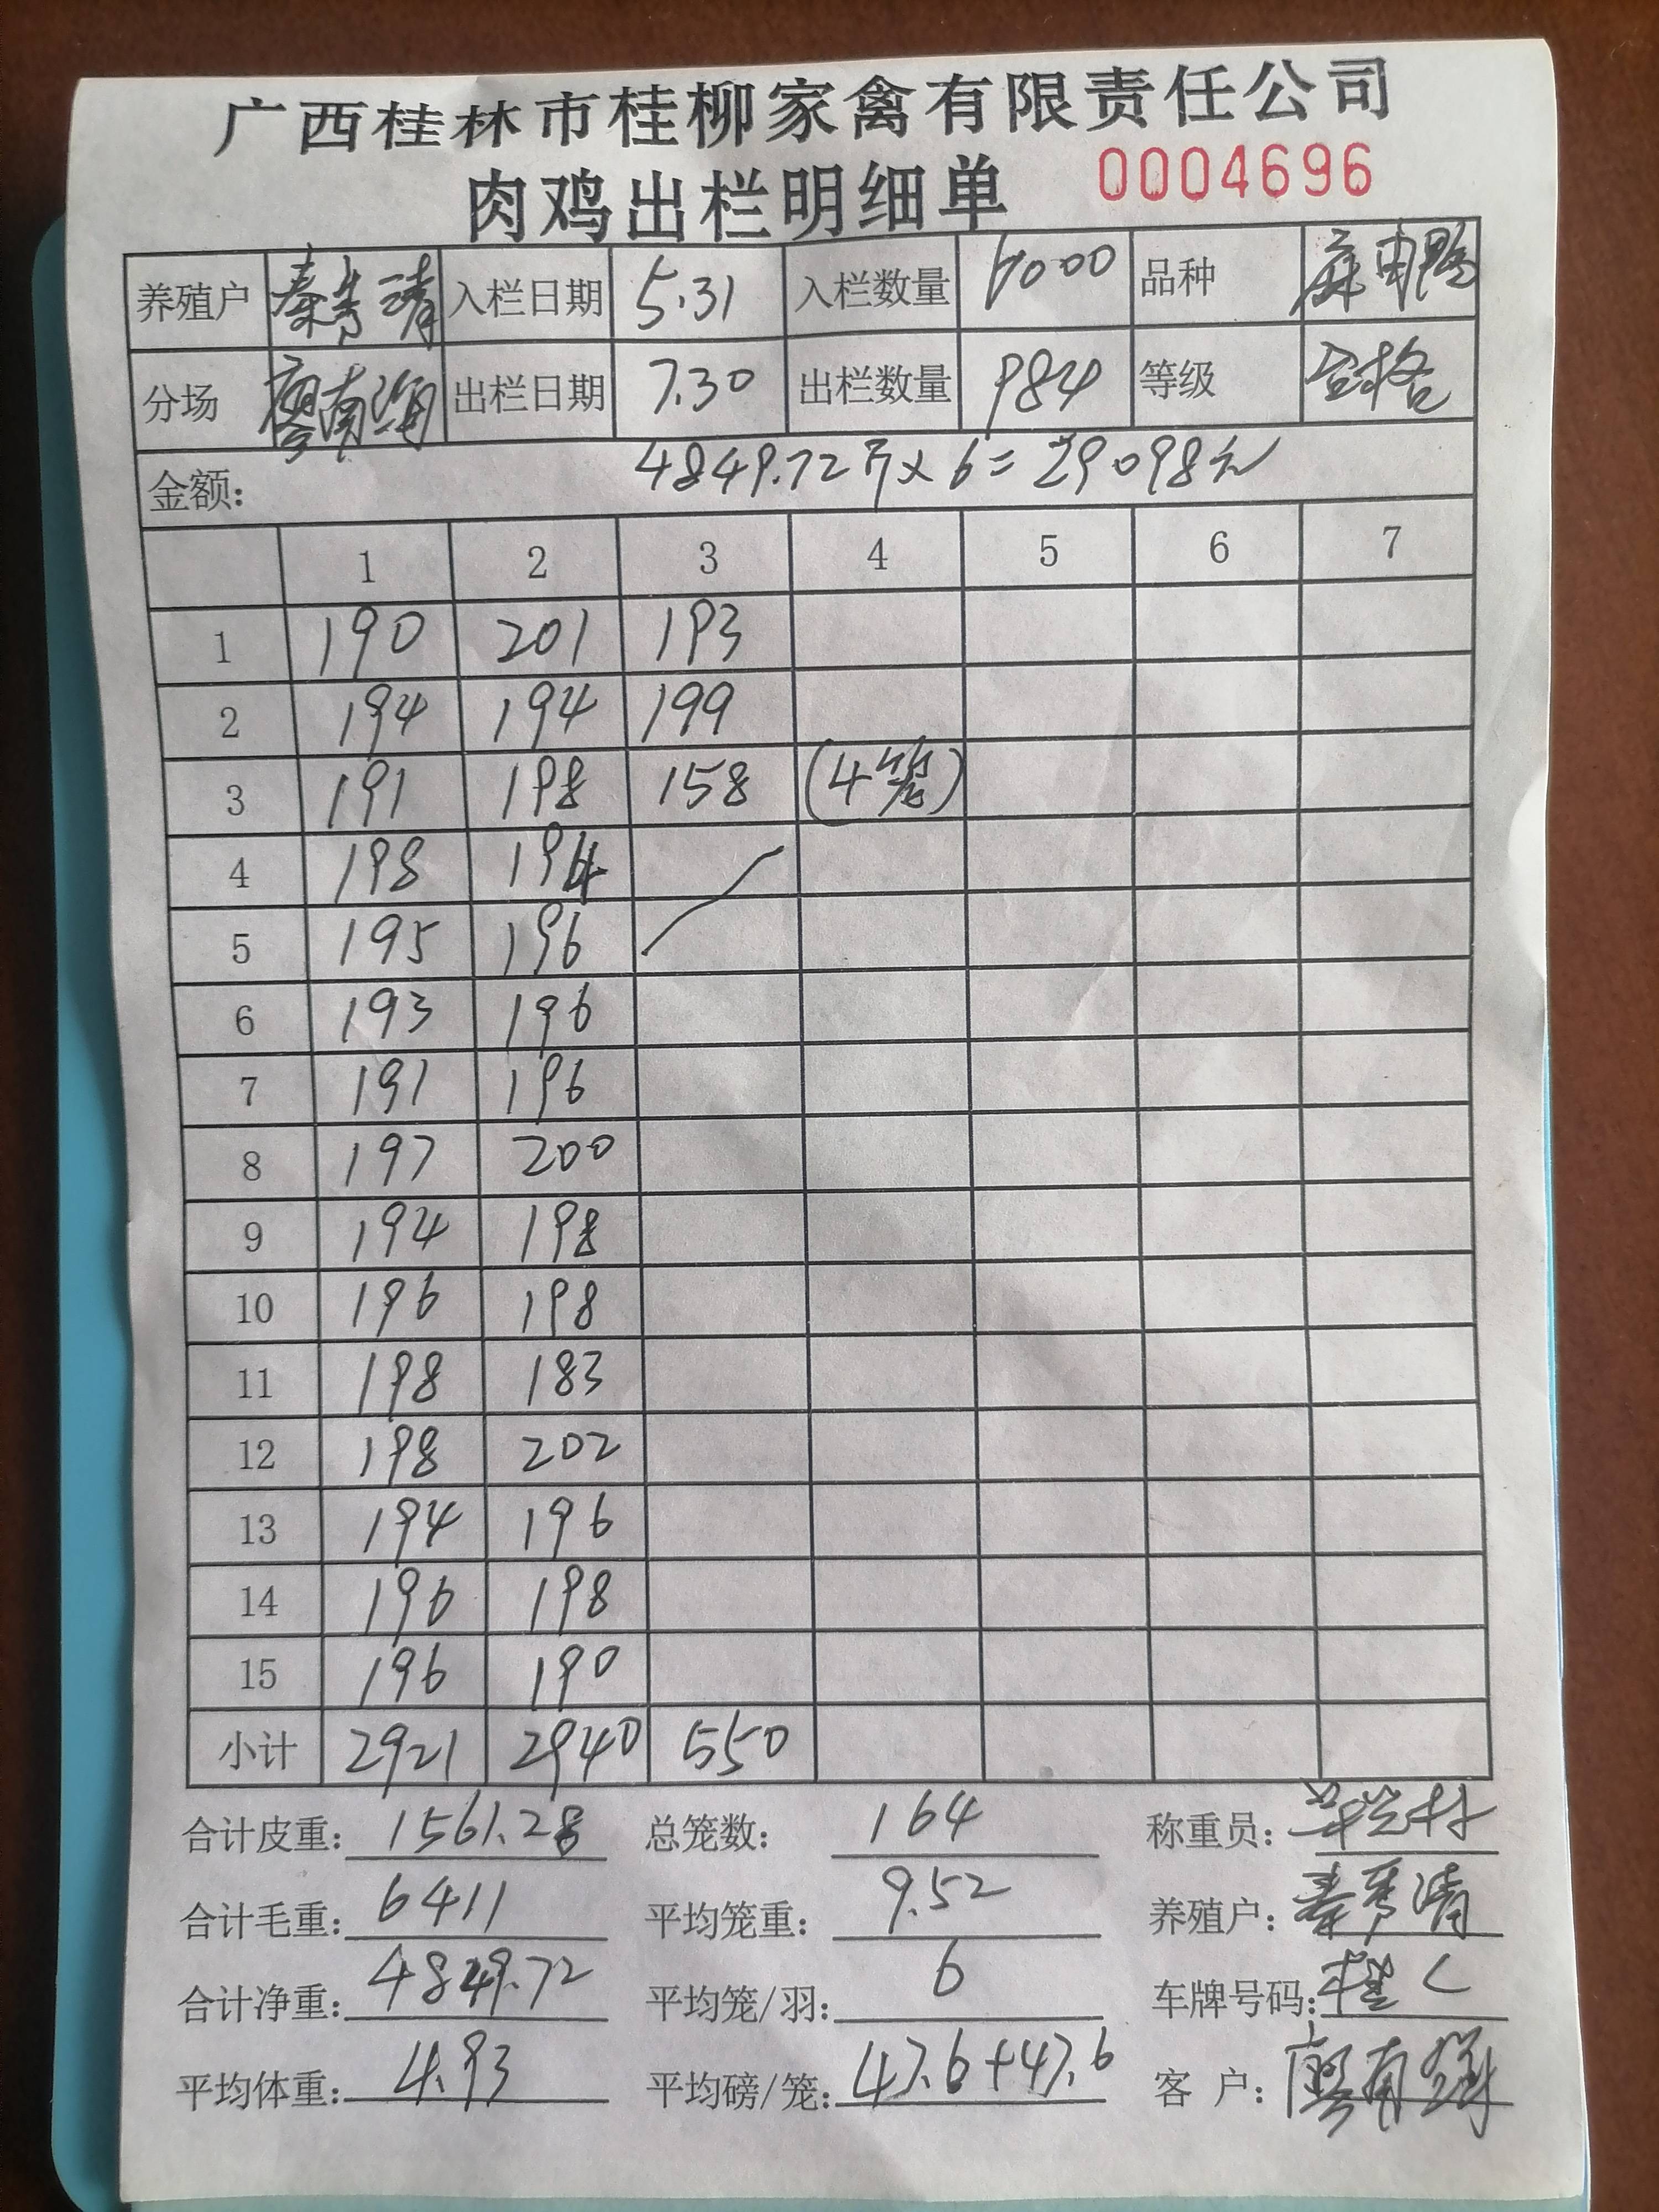 广西桂林市桂柳家禽有限责任公司
肉鸡出栏明细单 0004696
养殖户 秦秀清 入栏日期 5.31 入栏数量 6000 品种
分场 廖南海 出栏日期 7.30 出栏数量 984 等级 合格
金额: 4849.72斤×6=29098元
1 2 3 4 5 6 7
1 190 201 193
2 194 194 199
3 191 198 158 (4笼)
4 198 194
5 195 196
6 193 196
7 191 196
8 197 200
9 194 198
10 196 198
11 198 183
12 198 202
13 194 196
14 196 198
15 196 190
小计 2921 2940 550
合计皮重: 1561.28 总笼数: 164 称重员:
合计毛重: 6411 平均笼重: 9.52 养殖户: 秦秀清
合计净重: 4849.72 平均笼/羽: 6 车牌号码:
平均体重: 4.93 平均磅/笼: 47.6+47.6 客 户: